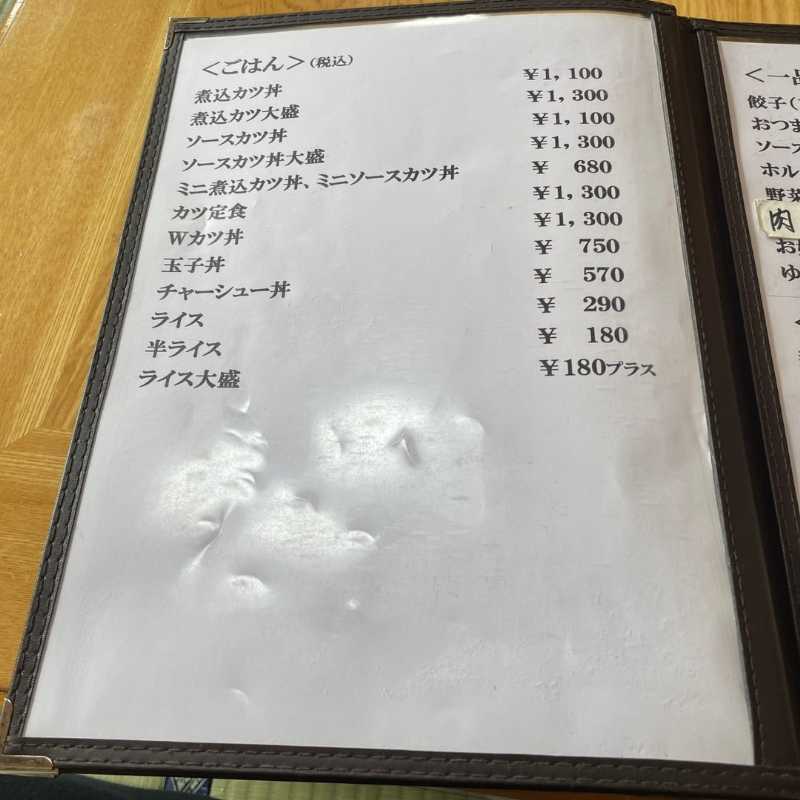 ＜ごはん＞（税込）
煮込カツ丼 ￥1，100
煮込カツ大盛 ￥1，300
ソースカツ丼 ￥1，100
ソースカツ丼大盛 ￥1，300
ミニ煮込カツ丼、ミニソースカツ丼 ￥ 680
カツ定食 ￥1，300
Wカツ丼 ￥1，300
玉子丼 ￥ 750
チャーシュー丼 ￥ 570
ライス ￥ 290
半ライス ￥ 180
ライス大盛 ￥180プラス
＜一品
餃子（
おつま
ソース
ホル
野菜
肉
お
ゆ